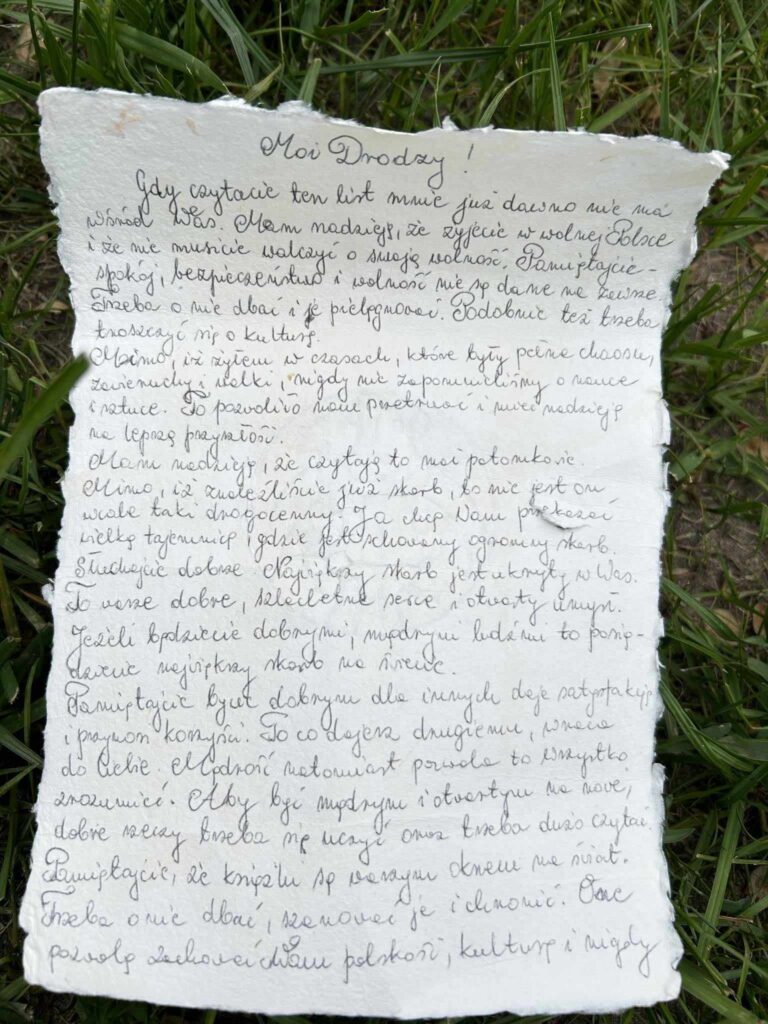 Moi Drodzy!
Gdy czytacie ten list mnie już dawno nie ma
wśród Was. Mam nadzieję, że żyjecie w wolnej Polsce
i że nie musicie walczyć o swoją wolność. Pamiętajcie -
spokój, bezpieczeństwo i wolność nie są dane na zawsze.
Trzeba o nie dbać i je pielęgnować. Podobnie też trzeba
troszczyć się o kulturę.
Mimo, iż żyłem w czasach, które były pełne chaosu,
zawieruchy i walki, nigdy nie zapomnieliśmy o nauce
i sztuce. To pozwoliło nam przetrwać i mieć nadzieję
na lepszą przyszłość.
Mam nadzieję, że czytają to moi potomkowie.
Mimo, iż znaleźliście już skarb, to nie jest on
wcale taki drogocenny. Ja chcę Wam przekazać
wielką tajemnicę, gdzie jest schowany ogromny skarb.
Słuchajcie dobrze. Największy skarb jest ukryty w Was.
To wasze dobre, szlachetne serce i otwarty umysł.
Jeżeli będziecie dobrymi, mądrymi ludźmi to posią-
dziecie największy skarb na świecie.
Pamiętajcie bycie dobrym dla innych daje satysfakcję
i przynosi korzyści. To co dajesz drugiemu, wraca
do Ciebie. Mądrość natomiast pozwala to wszystko
zrozumieć. Aby być mądrym i otwartym na nowe,
dobre rzeczy trzeba się uczyć oraz trzeba dużo czytać.
Pamiętajcie, że książki są waszym oknem na świat.
Trzeba o nie dbać, szanować je i chronić. One
pozwolą zachować Wam polskość, kulturę i nigdy